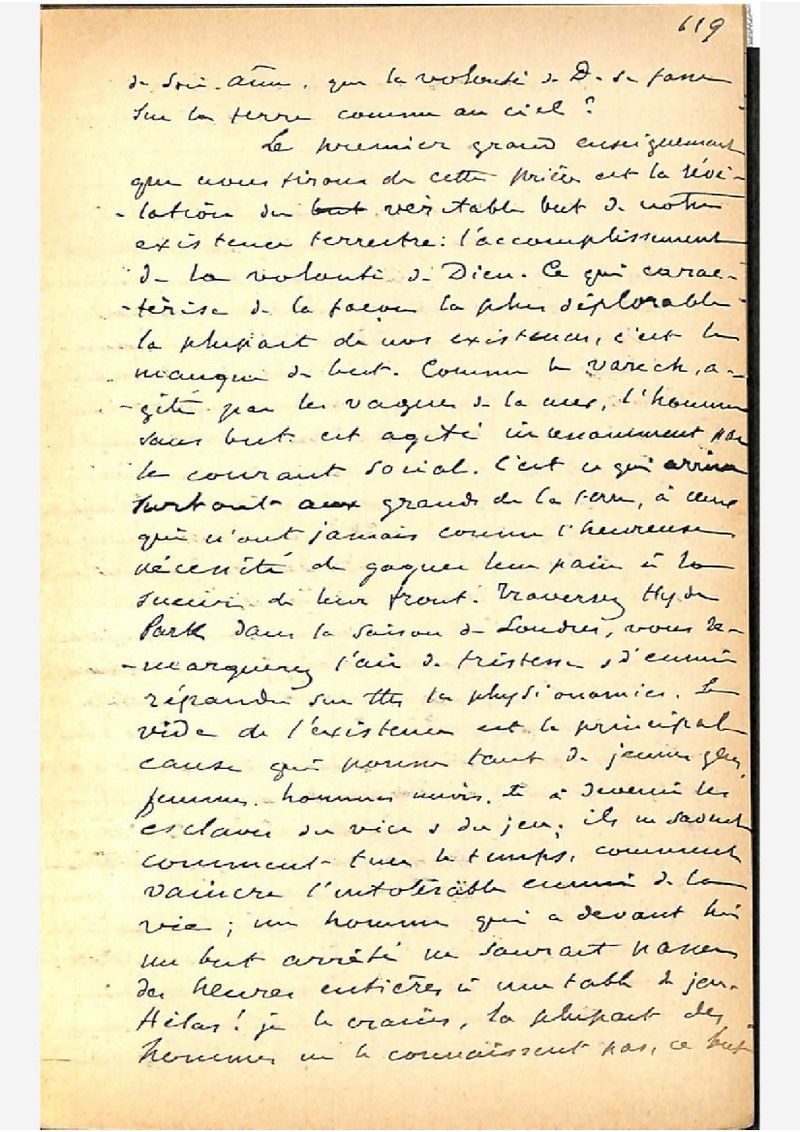 119
de son âme, que la volonté de D. se fasse
sur la terre comme au ciel?
Le premier grand enseignement
que nous tirons de cette prière est la révé-
-lation du but véritable but de notre
existence terrestre: l'accomplissement
de la volonté de Dieu. Ce qui carac-
-térise de la façon la plus déplorable
la plupart de nos existences, c'est le
manque de but. Comme le varech, a-
-gité par les vagues de la mer, l'homme
sans but est agité incessamment par
le courant social. C'est ce qui arrive
surtout aux grands de la terre, à ceux
qui n'ont jamais connu l'heureuse
nécessité de gagner leur pain à la
sueur de leur front. Traversez Hyde
Park dans la saison de Londres, vous re-
-marquerez l'air de tristesse & d'ennui
répandu sur ttes les physionomies. Le
vide de l'existence est la principale
cause qui pousse tant de jeunes gens,
femmes, hommes mûrs, à devenir les
esclaves du vice & du jeu; ils ne savent
comment tuer le temps, comment
vaincre l'intolérable ennui de la
vie; un homme qui a devant lui
un but arrêté ne saurait passer
des heures entières à une table de jeu.
Hélas! je le crains, la plupart des
hommes ne le connaissent pas, ce but